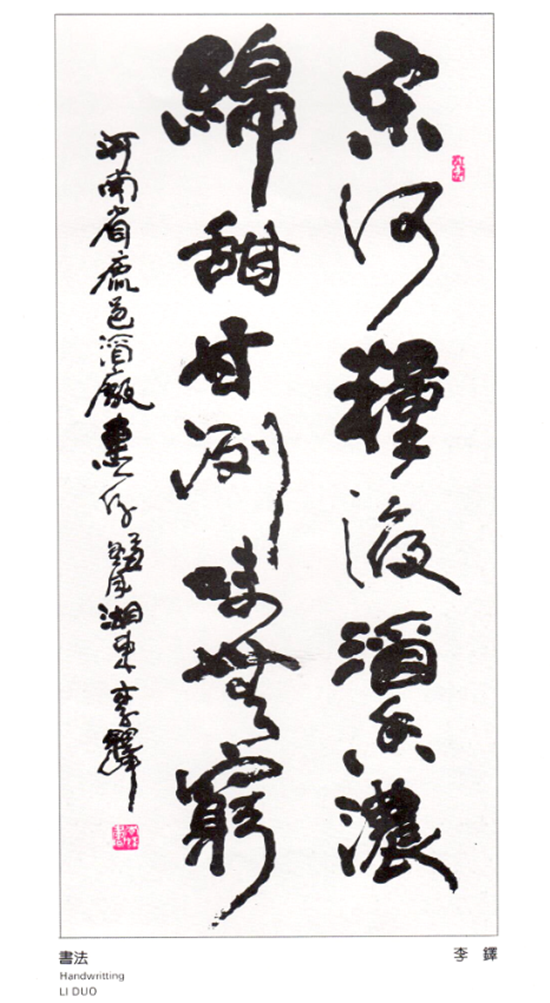 宋河糧液酒香濃
綿甜甘洌味無窮
河南省鹿邑酒廠惠存 湘東李鐸
書法
Handwritting
LI DUO
李 鐸